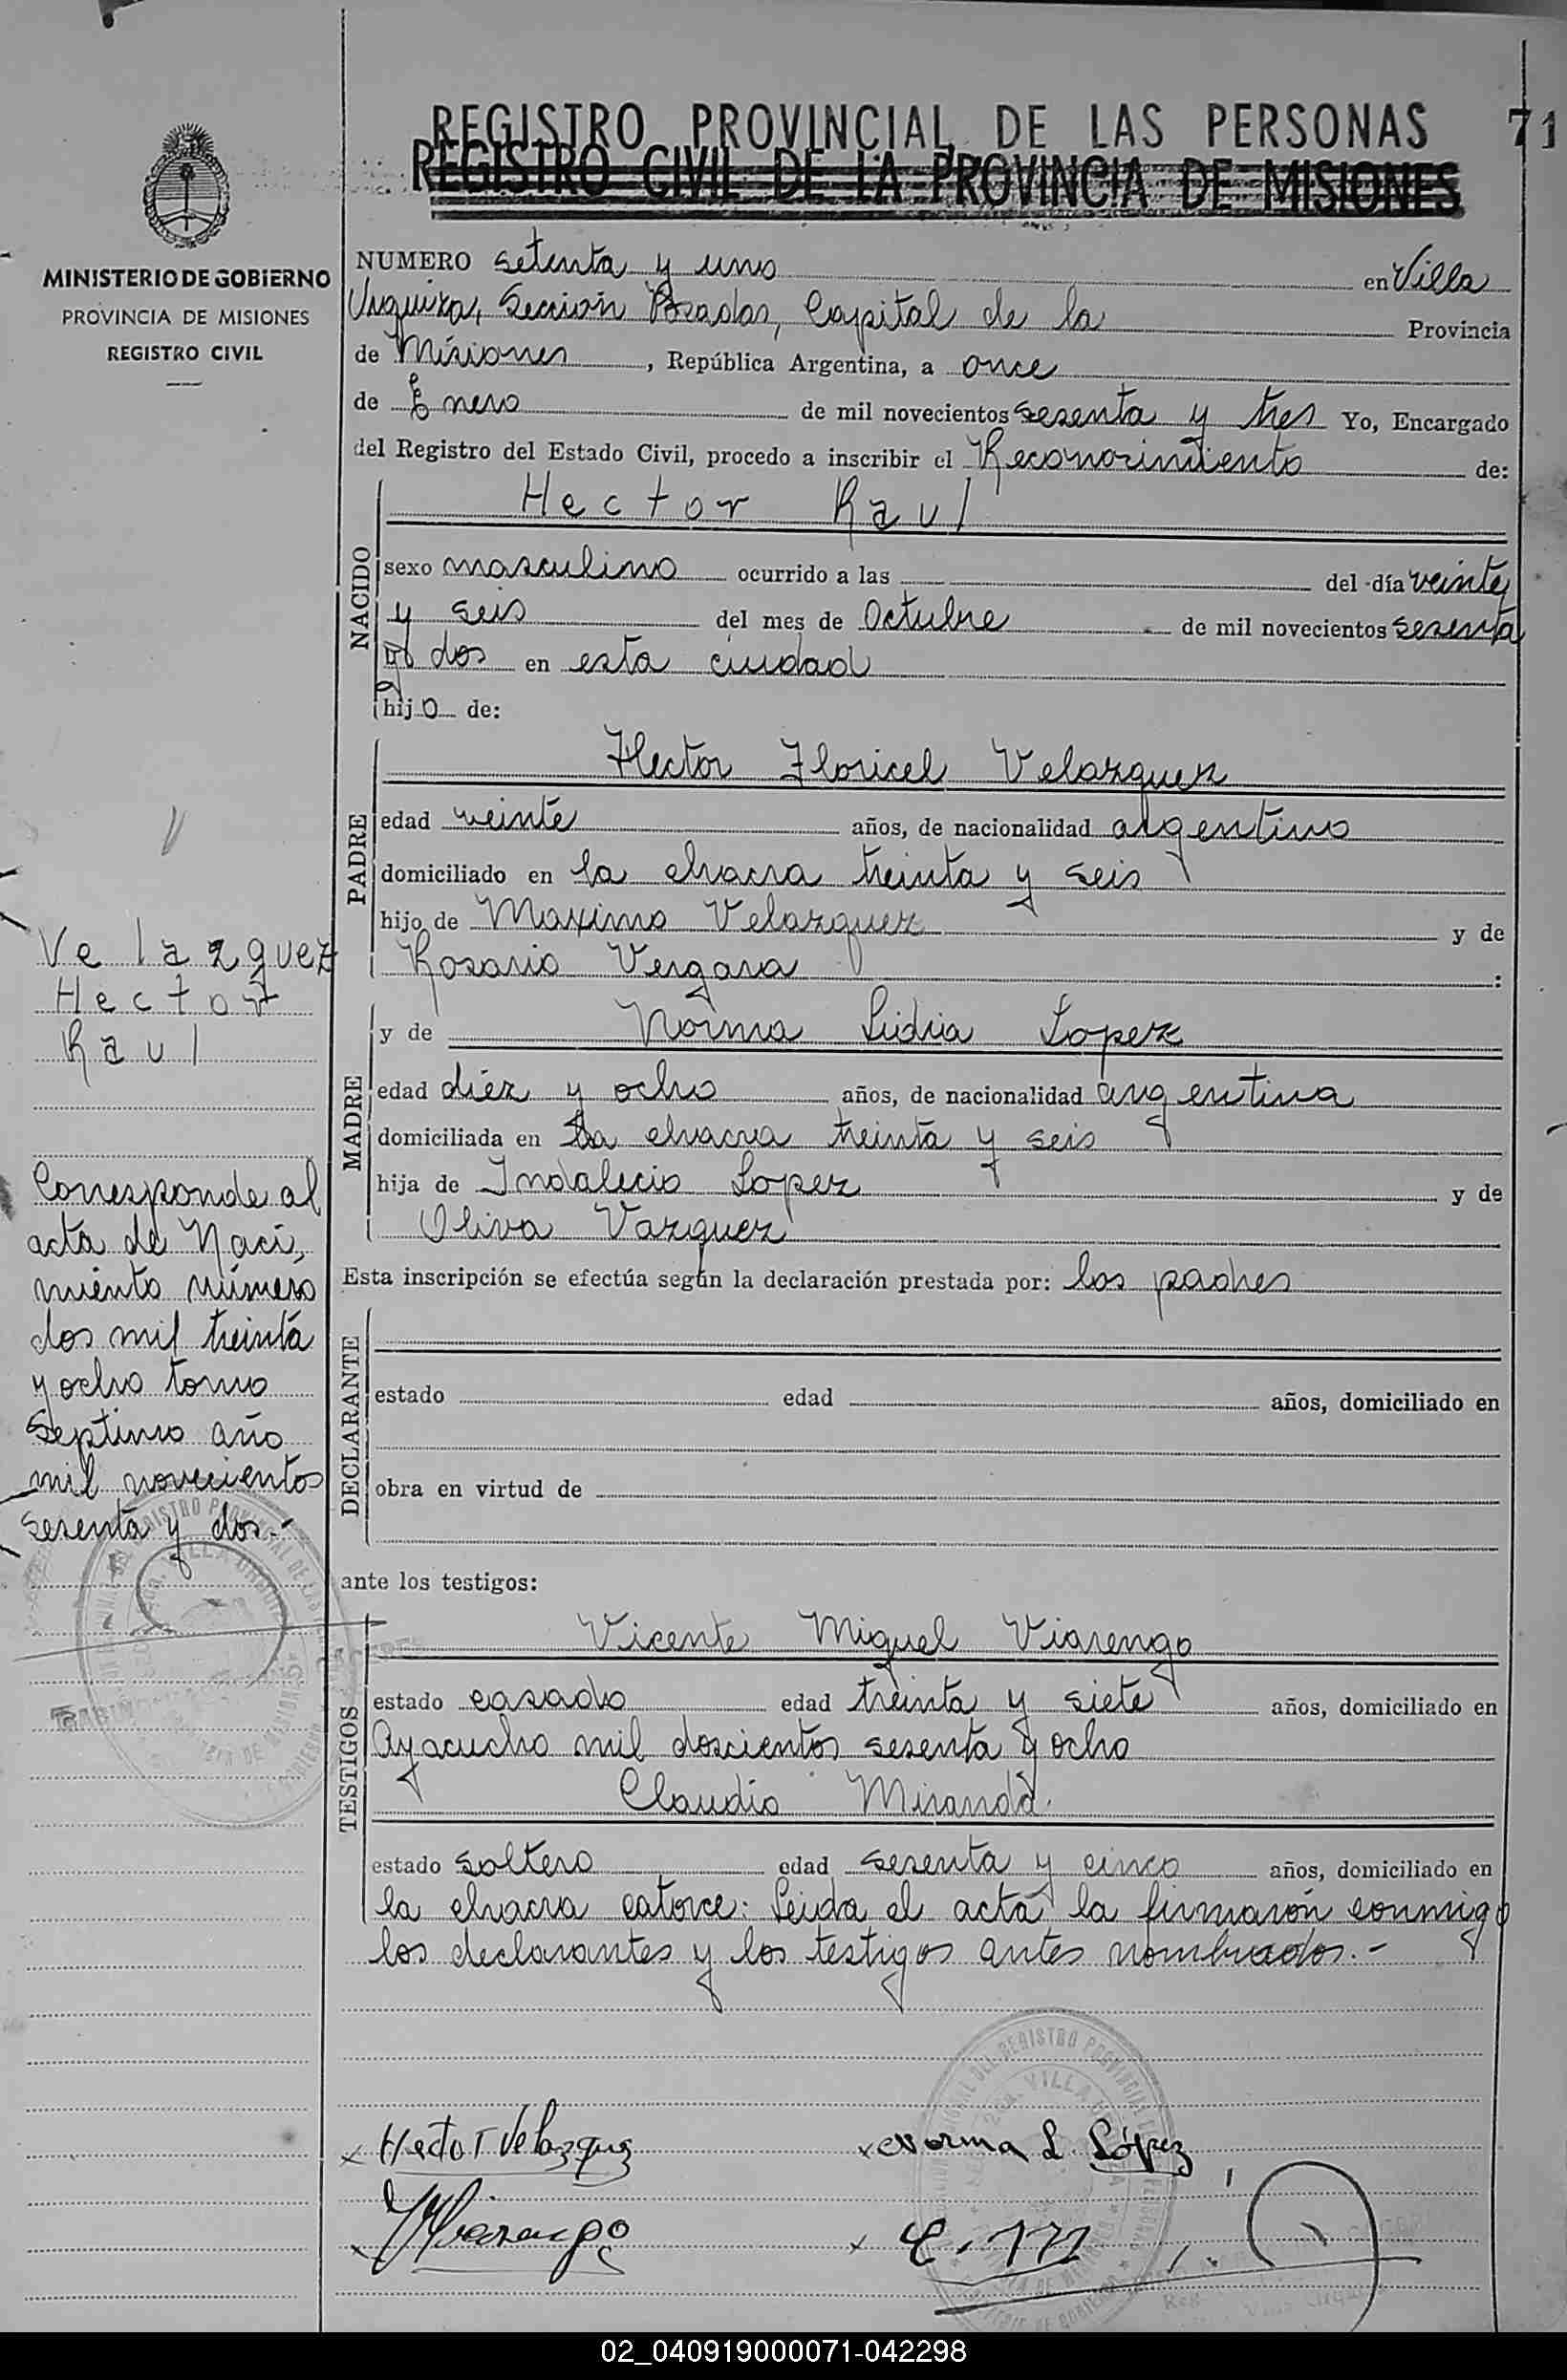 REGISTRO PROVINCIAL DE LAS PERSONAS 71
REGISTRO CIVIL DE LA PROVINCIA DE MISIONES
MINISTERIO DE GOBIERNO
PROVINCIA DE MISIONES
REGISTRO CIVIL
NUMERO setenta y uno en Villa
Urquiza, Sección Posadas, Capital de la Provincia
de Misiones, República Argentina, a once
de Enero de mil novecientos sesenta y tres Yo, Encargado
del Registro del Estado Civil, procedo a inscribir el Reconocimiento de:
NACIDO
Hector Raul
sexo masculino ocurrido a las — del día veinte
y seis del mes de Octubre de mil novecientos sesenta
y dos en esta ciudad
hijo de:
PADRE
Hector Floricel Velazquez
edad veinte años, de nacionalidad argentino
domiciliado en la chacra treinta y seis
hijo de Maximo Velazquez y de
Rosario Vergara :
MADRE
y de Norma Lidia Lopez
edad diez y ocho años, de nacionalidad argentina
domiciliada en la chacra treinta y seis
hija de Indalecio Lopez y de
Oliva Vazquez
Esta inscripción se efectúa según la declaración prestada por: los padres
DECLARANTE
estado edad años, domiciliado en
obra en virtud de
ante los testigos:
TESTIGOS
Vicente Miguel Viarengo
estado casado edad treinta y siete años, domiciliado en
Ayacucho mil doscientos sesenta y ocho
Claudio Miranda.
estado soltero edad sesenta y cinco años, domiciliado en
la chacra catorce: Leida el acta la firmarón conmigo
los declarantes y los testigos antes nombrados.-
Velazquez
Hector
Raul
Corresponde al
acta de Naci,
miento número
dos mil treinta
y ocho tomo
Septimo año
mil novecientos
sesenta y dos.-
x Hector Velazquez x Norma L. López
x Viarengo x C. M
02_040919000071-042298